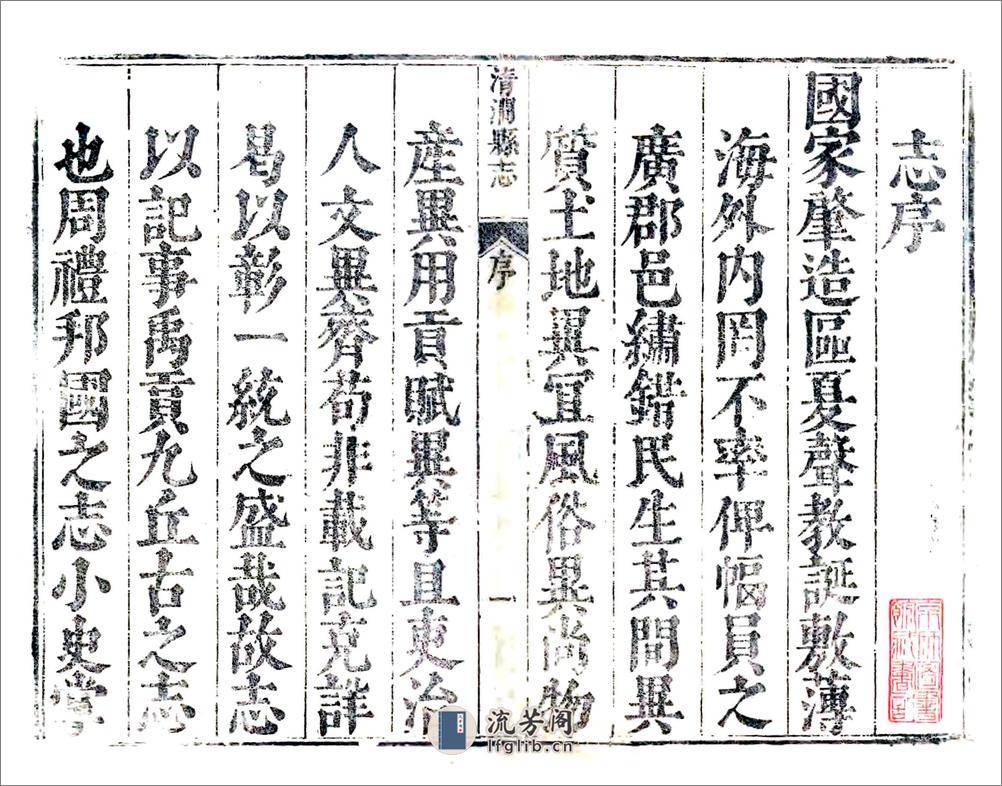 志序
國家肇造區夏聲教誕敷薄
海外内罔不率俾幅員之
廣郡邑繡錯民生其間異
質土地異宜風俗異尚物
清澗縣志
序
一
產異用貢賦異等且吏治
人文異齊苟非載記克詳
曷以彰一統之盛哉故志
以記事禹貢九丘古之志
也周禮邦國之志小史掌
流芳阁
lfglib.cn